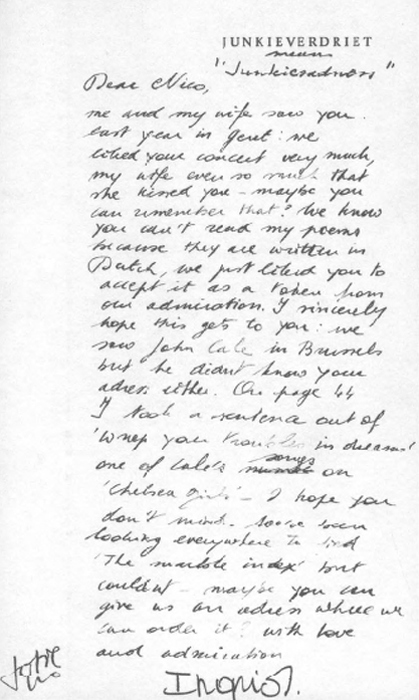 JUNKIEVERDRIET
means
"Junkiesadness"
Dear Nico,
me and my wife saw you
last year in Gent: we
liked your concert very much,
my wife even so much that
she kissed you - maybe you
can remember that? We know
you can't read my poems
because they are written in
Dutch, we just liked you to
accept it as a token from
our admiration. I sincerely
hope this gets to you: we
saw John Cale in Brussels
but he didn't know your
adress either. On page 44
I took a sentence out of
'Wrap your troubles in dreams'
one of Cale's songs on
'Chelsea Girls' - I hope you
don't mind. been
looking everywhere to find
'The marble index' but
couldn't - maybe you can
give us an adress where we
can order it? with love
and admiration